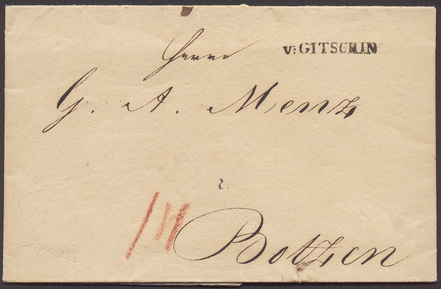 v: GITSCHIN
Herrn
G. A. Menz
2.
Botzen